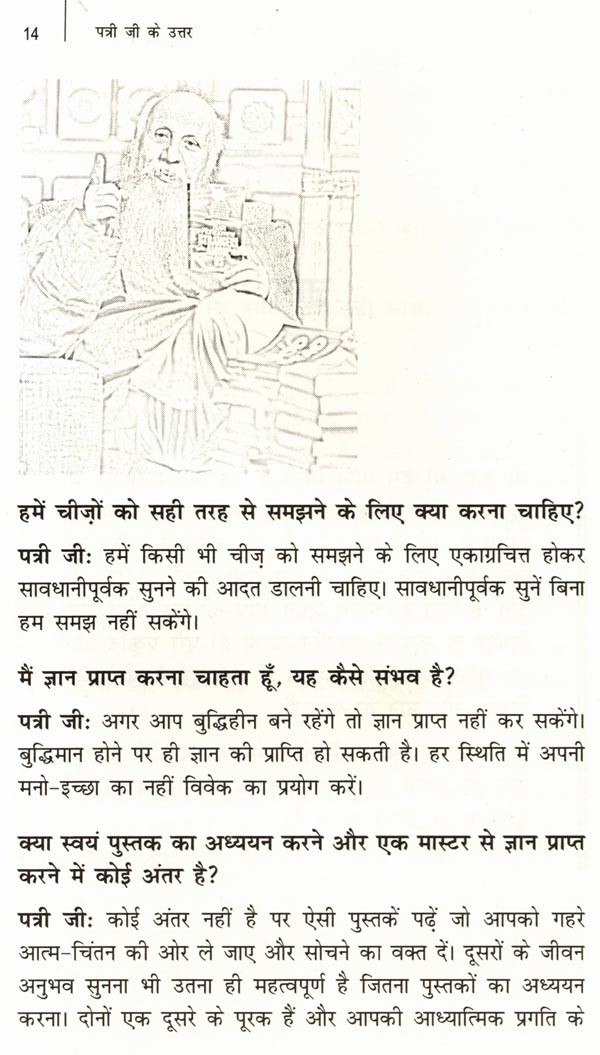 14
पत्री जी के उत्तर
हमें चीज़ों को सही तरह से समझने के लिए क्या करना चाहिए?
पत्री जी: हमें किसी भी चीज़ को समझने के लिए एकाग्रचित्त होकर
सावधानीपूर्वक सुनने की आदत डालनी चाहिए। सावधानीपूर्वक सुनें बिना
हम समझ नहीं सकेंगे।
मैं ज्ञान प्राप्त करना चाहता हूँ, यह कैसे संभव है?
पत्री जी: अगर आप बुद्धिहीन बने रहेंगे तो ज्ञान प्राप्त नहीं कर सकेंगे।
बुद्धिमान होने पर ही ज्ञान की प्राप्ति हो सकती है। हर स्थिति में अपनी
मनो-इच्छा का नहीं विवेक का प्रयोग करें।
क्या स्वयं पुस्तक का अध्ययन करने और एक मास्टर से ज्ञान प्राप्त
करने में कोई अंतर है?
पत्री जी: कोई अंतर नहीं है पर ऐसी पुस्तकें पढ़ें जो आपको गहरे
आत्म-चिंतन की ओर ले जाए और सोचने का वक्त दें। दूसरों के जीवन
अनुभव सुनना भी उतना ही महत्वपूर्ण है जितना पुस्तकों का अध्ययन
करना। दोनों एक दूसरे के पूरक हैं और आपकी आध्यात्मिक प्रगति के